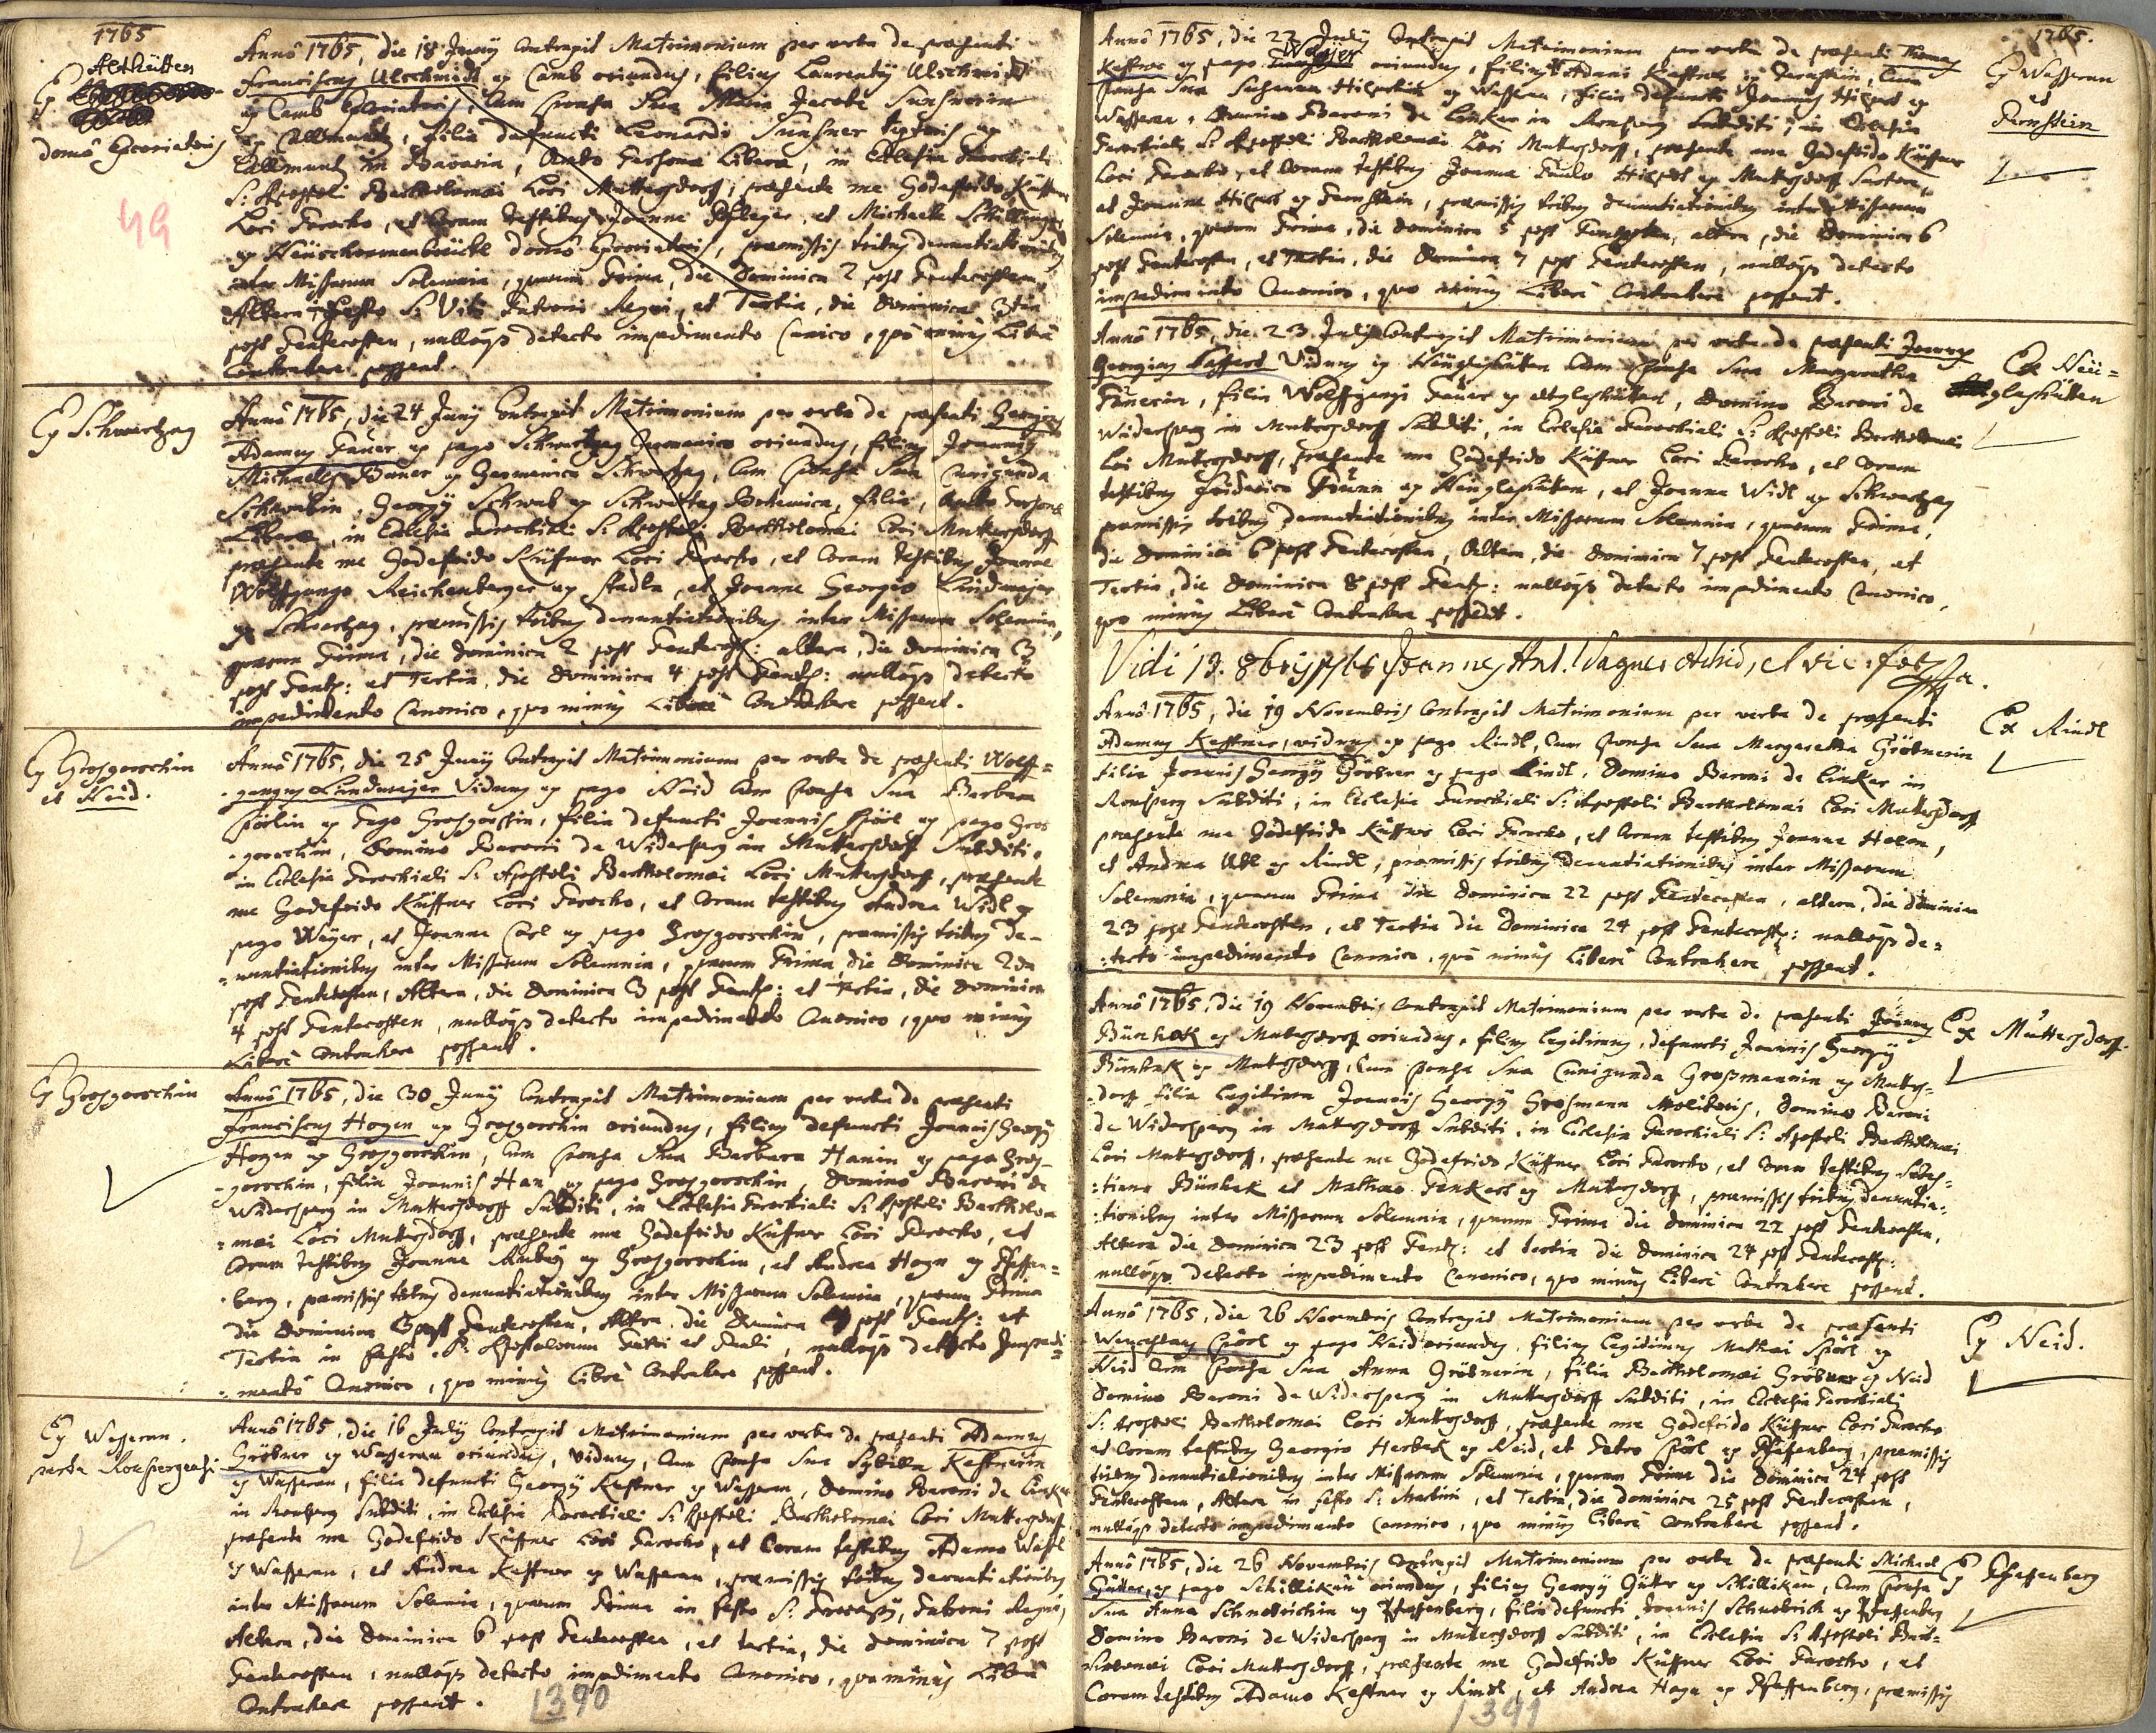 1765
Althütten
Ex
domô Excoriatoris
Annô 1765, die 18 Junÿ Contraxit Matrimonium per verba de præsenti
Franciscus Ulschmidt ex Camb oriundus, filius Laurentÿ Ulschmidt
ex Camb Excoriatoris, Cum sponsa sua Maria Jacobe
ex, filia defuncti Leonardi
in Bavaria, Ambo Personæ Liberæ, in Ecclesia Parochiali
S: Apostoli Bartholomæi Loci Muttersdorff, præsente me Godefrido Küffner
Loci Parocho, et Coram testibus Joanne, et Michaele
ex domô excoriatoris, præmissis tribus denuntiationibus
inter Missarum Solemnia, quarum Prima, die Dominica 2 post Pentecosten,
Altera in Festo S: Viti Patroni Regni, et Tertia, die Dominica 3tia
post Pentecosten, nulloqs detecto impedimento Canico, quô minus Liberè
Contrahere possent.
Ex Schwartzag
Annô 1765, die 24 Junÿ Contraxit Matrimonium per verba de præsenti Georgius
Adamus Pauer ex pago Schwartzag Germanica oriundus, filius Joannis
Michaelis Pauer ex Germanica Schwartzag, Cum sponsa sua Cunigunda
Schwabin, Georgÿ Schwab ex Schwartzag Bohemica, filia, Ambo Personæ
Liberæ, in Ecclesia Parochiali S: Apostoli Bartholomæi Loci Muttersdorff
præsente me Godefrido Küffner Loci Parocho, et Coram testibus Joanne
Wolffgango Reichenberger ex Stadln, et Joanne Georgio Lindmajer
ex Schwartzag, præmissis tribus denuntiationibus inter Missarum Solemnia,
quarum Prima, die Dominica 2 post Pentecost: altera, die Dominica 3
post Pent: et Tertia, die Dominica 4 post Pent: nulloqs detecto
impedimento Canonico, quo minus Liberè Contrahere possent.
Ex Grosgorschin
et Haid.
Annô 1765, die 25 Junÿ Contraxit Matrimonium per verba de præsenti Wolff=
gangus Lindmajer Viduus ex pago Haid Cum sponsa sua Barbara
Spörlin ex pago Grosgorschin, filia defuncti Joannis Spörl ex pago Gros
gorschin, Domino Baroni de Widersperg in Muttersdorff Subditi,
in Ecclesia Parochiali S: Apostoli Bartholomæi Loci Muttersdorff, præsente
me Godefrido Küffner Loci Parocho, et Coram testibus Andrea Widl ex
pago Weÿer, et Joanne ex pago Grosgorschin, præmissis tribus de=
nuntiationibus inter Missarum Solemnia, quarum Prima, die Dominica 2da
post Pentecosten, Altera, die Dominica 3 post Pent: et Tertia, die Dominica
4 post Pentecosten, nulloqs detecto impedimento Canonico, quo minus
Liberè Contrahere possent.
Ex Grosgorschin
Annô 1765, die 30 Junÿ Contraxit Matrimonium per verba de præsenti
Franciscus Hogen ex Grosgorschin oriundus, filius defuncti Joannis Georgÿ
Hogen ex Grosgorschin, Cum sponsa sua Barbara Hanin ex pago Gros=
gorschin, filia Joannis Han ex pago Grosgorschin, Domino Baroni de
Widersperg in Muttersdorff Subditi, in Ecclesia Parochiali S: Apostoli Bartholo=
mæi Loci Muttersdorff, præsente me Godefrido Küffner Loci Parocho, et
Coram testibus Joanne ex Grosgorschin, et Andrea Hogn ex Pfaffen=
berg, præmissis tribus denuntiationibus inter Missarum Solemnia, quarum Prima
die Dominica 3 post Pentecosten, Altera die Dominica 4 post Pent: et
Tertia in Festo S: Apostolorum Petri et Pauli, nulloqs detecto Impedi=
mentô Canonico, quo minus Liberè Contrahere possent.
Ex Wasserau.
parte Ronspergensi
Annô 1765, die 16 Julÿ Contraxit Matrimonium per verba de præsenti Adamus
Gröbner ex Wasserau oriundus, Viduus, Cum sponsa sua Sybilla Kestnerin
ex Wasserau, filia defuncti Georgÿ Kestner ex Wasserau, Domino Baroni de Linker
in Ronsperg Subditi, in Ecclesia Parochiali S: Apostoli Bartholomæi Loci Muttersdorff
præsente me Godefrido Küffner Loci Parocho, et Coram testibus Adamo
ex Wasserau, et Andrea Kestner ex Wasserau, præmissis tribus denuntiationibus
inter Missarum Solemnia, quarum Prima in Festo S: Procopÿ, Patroni Regni,
Altera, die Dominica 6 post Pentecosten, et tertia, die Dominica 7 post
Pentecosten, nulloqs detecto impedimento Canonico, quo minus Liberè
Contrahere possent.
1390
1765.
Annô 1765, die 22 Julÿ Contraxit Matrimonium per verba de præsenti Thomas
Kestner ex pago Weÿer oriundus, filius Adami Kestner ex Fernstein, Cum
sponsa sua Susanna Hilpertin ex Wasserau, filia defuncti Joannis Hilpert ex
Wasserau, Domino Baroni de Linker in Ronsperg Subditi, in Ecclesia
Parochiali S: Apostoli Bartholomæi Loci Muttersdorff, præsente me Godefrido Küffner
Loci Parocho, et Coram testibus Joanne Paulo Hilpert ex Muttersdorff Sartore,
et Joanne Hilpert ex Fernstein, præmissis tribus denuntiationibus inter Missarum
Solemnia, quarum Prima, die Dominica 5 post Pentecosten, altera, die Dominica 6
post Pentecosten, et Tertia, die Dominica 7 post Pentecosten, nulloqs detecto
impedimento Canonico, quo minus Liberè Contrahere possent.
Ex Wasserau
et
Fernstein
Annô 1765, die 23 Julÿ Contraxit Matrimonium per verba de præsenti Joannes
Georgius Viduus ex Neuglashütten Cum sponsa sua Margaretha
Pauerin, filia Wolffgangi Pauer ex Altglashütten, Domino Baroni de
Widersperg in Muttersdorff Subditi, in Ecclesia Parochiali S: Apostoli Bartholomæi
Loci Muttersdorff, præsente me Godefrido Küffner Loci Parocho, et Coram
testibus Friderico ex Neuglashütten, et Joanne Widl ex Schwartzag
præmissis tribus Denuntiationibus inter Missarum Solemnia, quarum Prima,
die Dominica 6 post Pentecosten, Altera, die Dominica 7 post Pentecosten, et
Tertia, die Dominica 8 post Pent: nulloqs detecto impedimento Canonico,
quo minus Liberè Contrahere possent.
Ex Neü=
glashütten
Vidi 13. 8bris Joannes Ant. Wagner
Annô 1765, die 19 Novembris Contraxit Matrimonium per verba de præsenti
Adamus Kestner, viduus ex pago Rindl, Cum sponsa sua Margaretha Gröbnerin
filia Joannis Georgÿ Gröbner ex pago Rindl, Domino Baroni de Linker in
Ronsperg Subditi, in Ecclesia Parochiali S: Apostoli Bartholomæi Loci Muttersdorff
præsente me Godefrido Küffner Loci Parocho, et Coram testibus Joanne,
et Andrea ex Rindl, præmissis tribus Denuntiationibus inter Missarum
Solemnia, quarum Prima die Dominica 22 post Pentecosten, altera, die Dominica
23 post Pentecosten, et Tertia die Dominica 24 post Pentecost: nulloqs de=
tecto impedimento Canonico, quô minus Liberè Contrahere possent.
Ex Rindl
Annô 1765, die 19 Novembris Contraxit Matrimonium per verba de præsenti Joannes
Bünhak ex Muttersdorff oriundus, filius Legitimus, defuncti Joannis Georgÿ
Bünhak ex Muttersdorff, Cum sponsa sua Cunigunda Grosmannin ex Mutters=
dorff filia Legitima Joannis Georgÿ Grosmann Molitoris, Domino Baroni
de Widersperg in Muttersdorff Subditi, in Ecclesia Parochiali S: Apostoli Bartholomæi
Loci Muttersdorff, præsente me Godefrido Küffner Loci Parocho, et Coram testibus Sebas=
tiano Bünhak et Mathæo ex Muttersdorff, præmissis tribus denuntia=
tionibus inter Missarum Solemnia, quarum Prima die Dominica 22 post Pentecosten,
Altera die Dominica 23 post Pent: et tertia die Dominica 24 post Pentecost:
nulloqs detecto impedimento Canonico, quo minus Liberè Contrahere possent.
Ex Müttersdorff.
Annô 1765, die 26 Novembris Contraxit Matrimonium per verba de præsenti
Wenceslaus Spörl ex pago Haid oriundus, filius Legitimus Mathæi Spörl ex
Haid Cum sponsa sua Anna Gröbnerin, filia Bartholomæi Gröbner ex Haid
Domino Baroni de Widersperg in Muttersdorff Subditi, in Ecclesia Parochiali
S: Apostoli Bartholomæi Loci Muttersdorff, præsente me Godefrido Küffner Loci Parocho
et Coram testibus Georgio ex Haid, et Petro Spörl ex Pfaffenberg, præmissis
tribus denuntiationibus inter Missarum Solemnia, quarum Prima die Dominica 24 post
Pentecosten, Altera in festo S: Martini, et Tertia, die Dominica 25 post Pentecosten,
nulloqs detecto impedimento Canonico, quo minus Liberè Contrahere possent.
Ex Haid.
Annô 1765, die 26 Novembris Contraxit Matrimonium per verba de præsenti Michael
Gütter, ex pago Schillikau oriundus, filius Georgÿ Gütter ex Schillikau, Cum sponsa
sua Anna ex Pfaffenberg, filia defuncti Joannis ex Pfaffenberg
Domino Baroni de Widersperg in Muttersdorff Subditi, in Ecclesia S: Apostoli Bar=
tholomæi Loci Muttersdorff, præsente me Godefrido Küffner Loci Parocho, et
Coram testibus Adamo Kestner ex Rindl, et Andrea Hogn ex Pfaffenberg, præmissis
Ex Pfaffenberg
1391